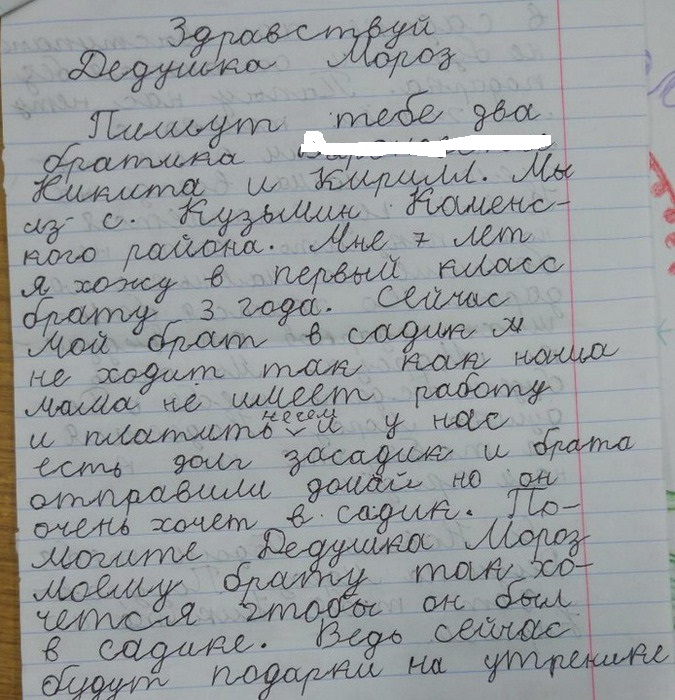 Здравствуй
Дедушка Мороз
Пишут тебе два
братика
Никита и Кирилл. Мы
из с. Кузьмин Каменс-
кого района. Мне 7 лет
я хожу в первый класс
брату 3 года. Сейчас
мой брат в садик
не ходит так как наша
мама не имеет работу
и платить нечем и у нас
есть долг засадик и брата
отправили домой но он
очень хочет в садик. По-
могите Дедушка Мороз
моему брату так хо-
четься чтобы он был
в садике. Ведь сейчас
будут подарки на утренике